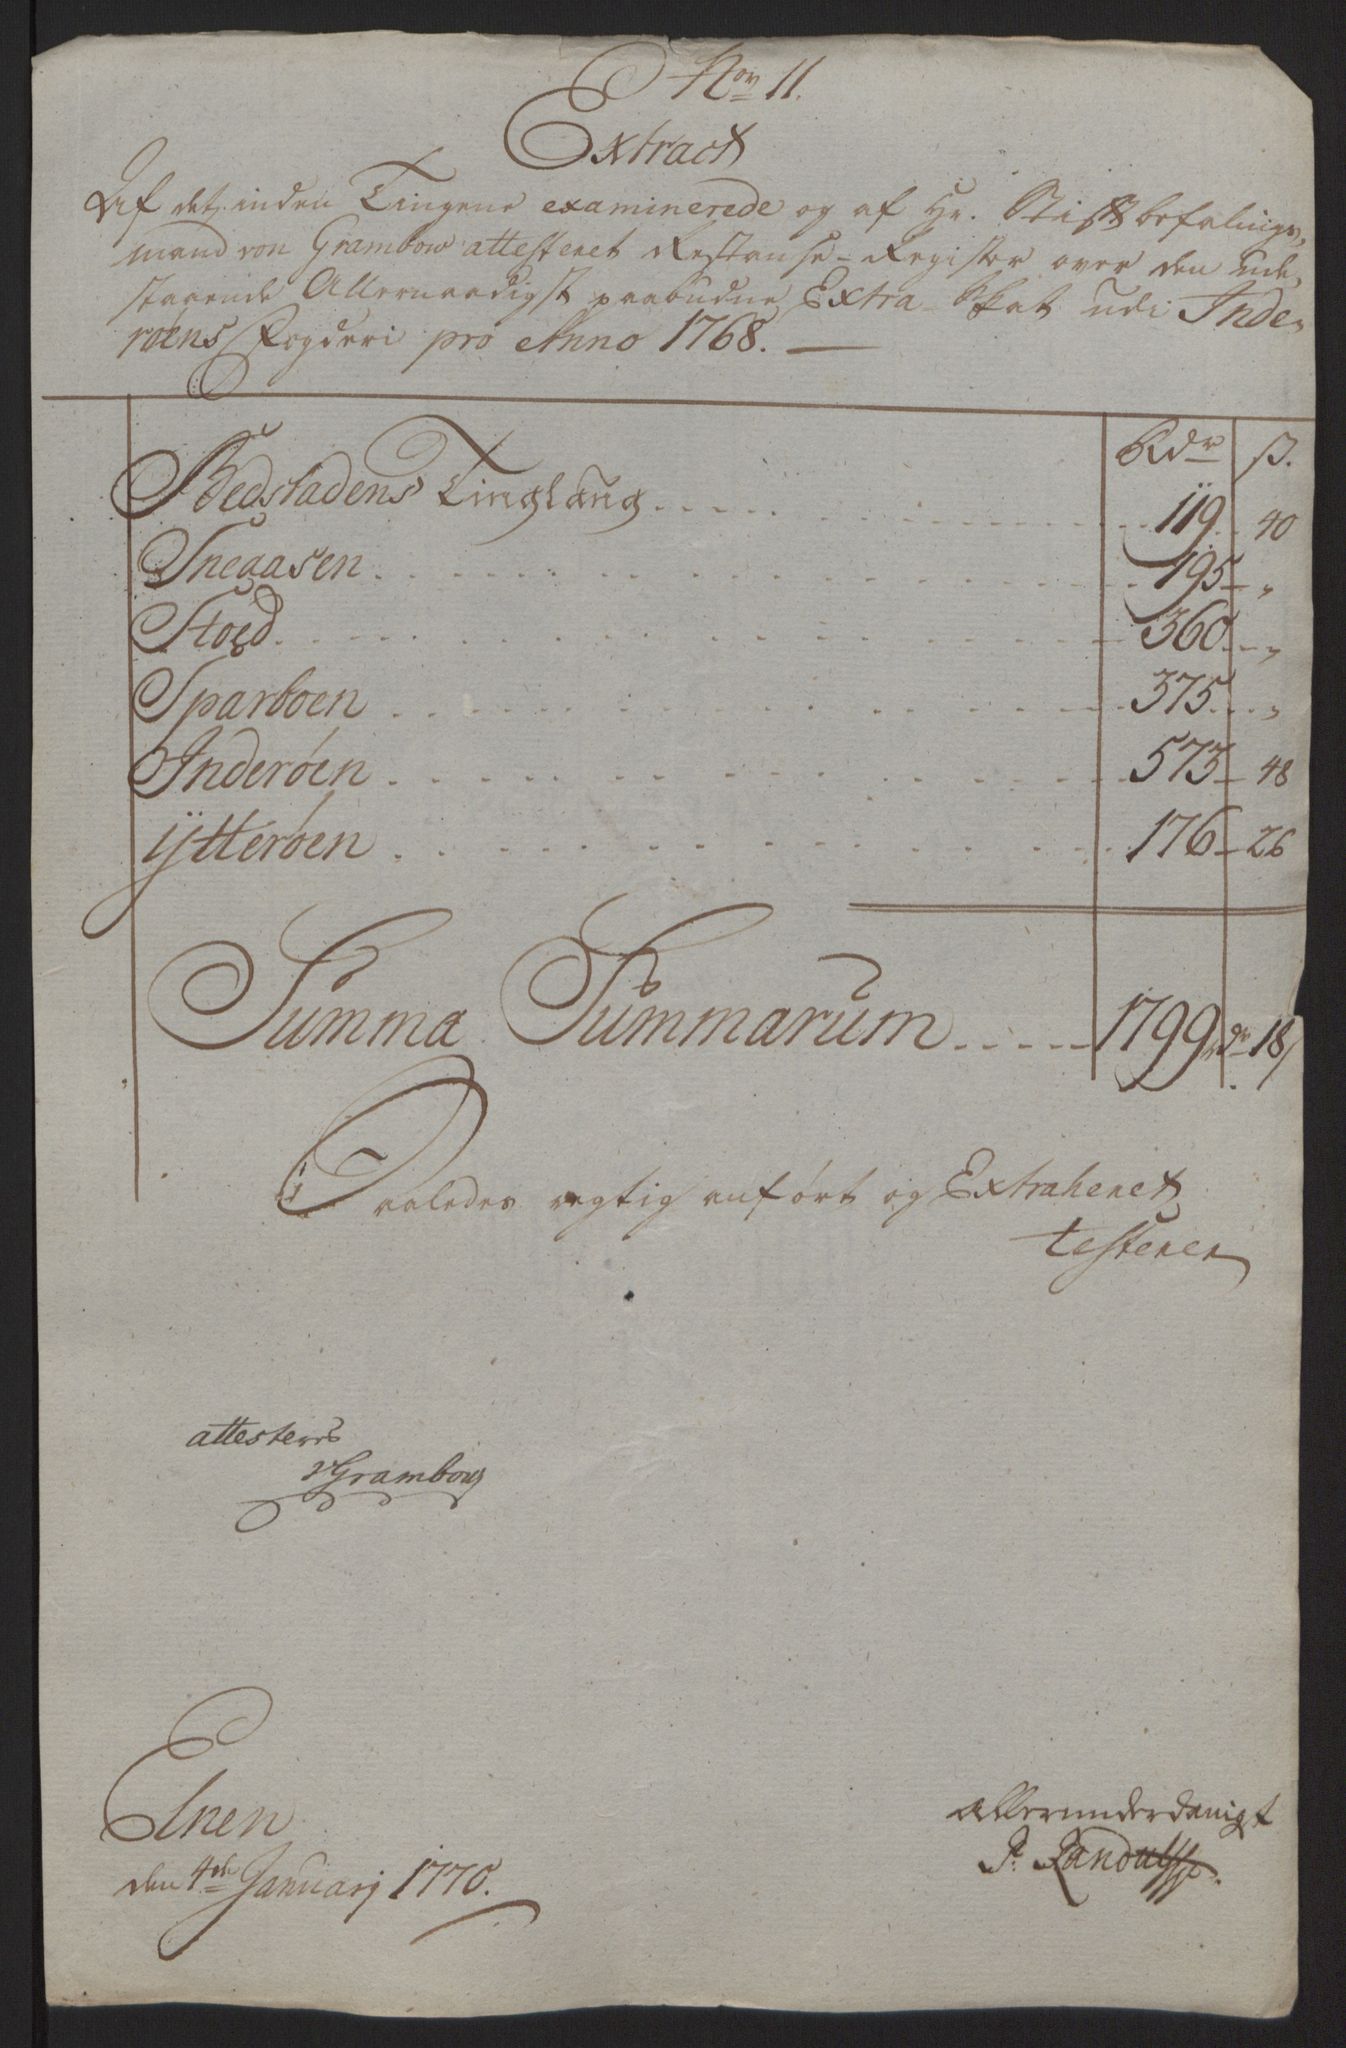 Nor 11.
Extract
Af det inden Tingene examinerede og af Hr. Stiftbefalings-
mand von Grambow attesteret Restanse-Register over den ude-
staaende Allernaadigst paabudne Extra-Skat udi Inde-
røens Fogderi pro Anno 1768.
Rdr ß.
Bedstadens Tinglaug 119 40
Sneaasen 195 - "
Stoed 360 - "
Sparboen 375 - "
Inderøen 573 - 48
ÿtterøen 176 - 26
Summa Summarum 1799 rdr 18 /
Saaledes rigtig anført og Extraheret
testerer
attesteres
vGrambow
Elnen
den 4de Januarj 1770.
allerunderdanigst
P: Randulff.